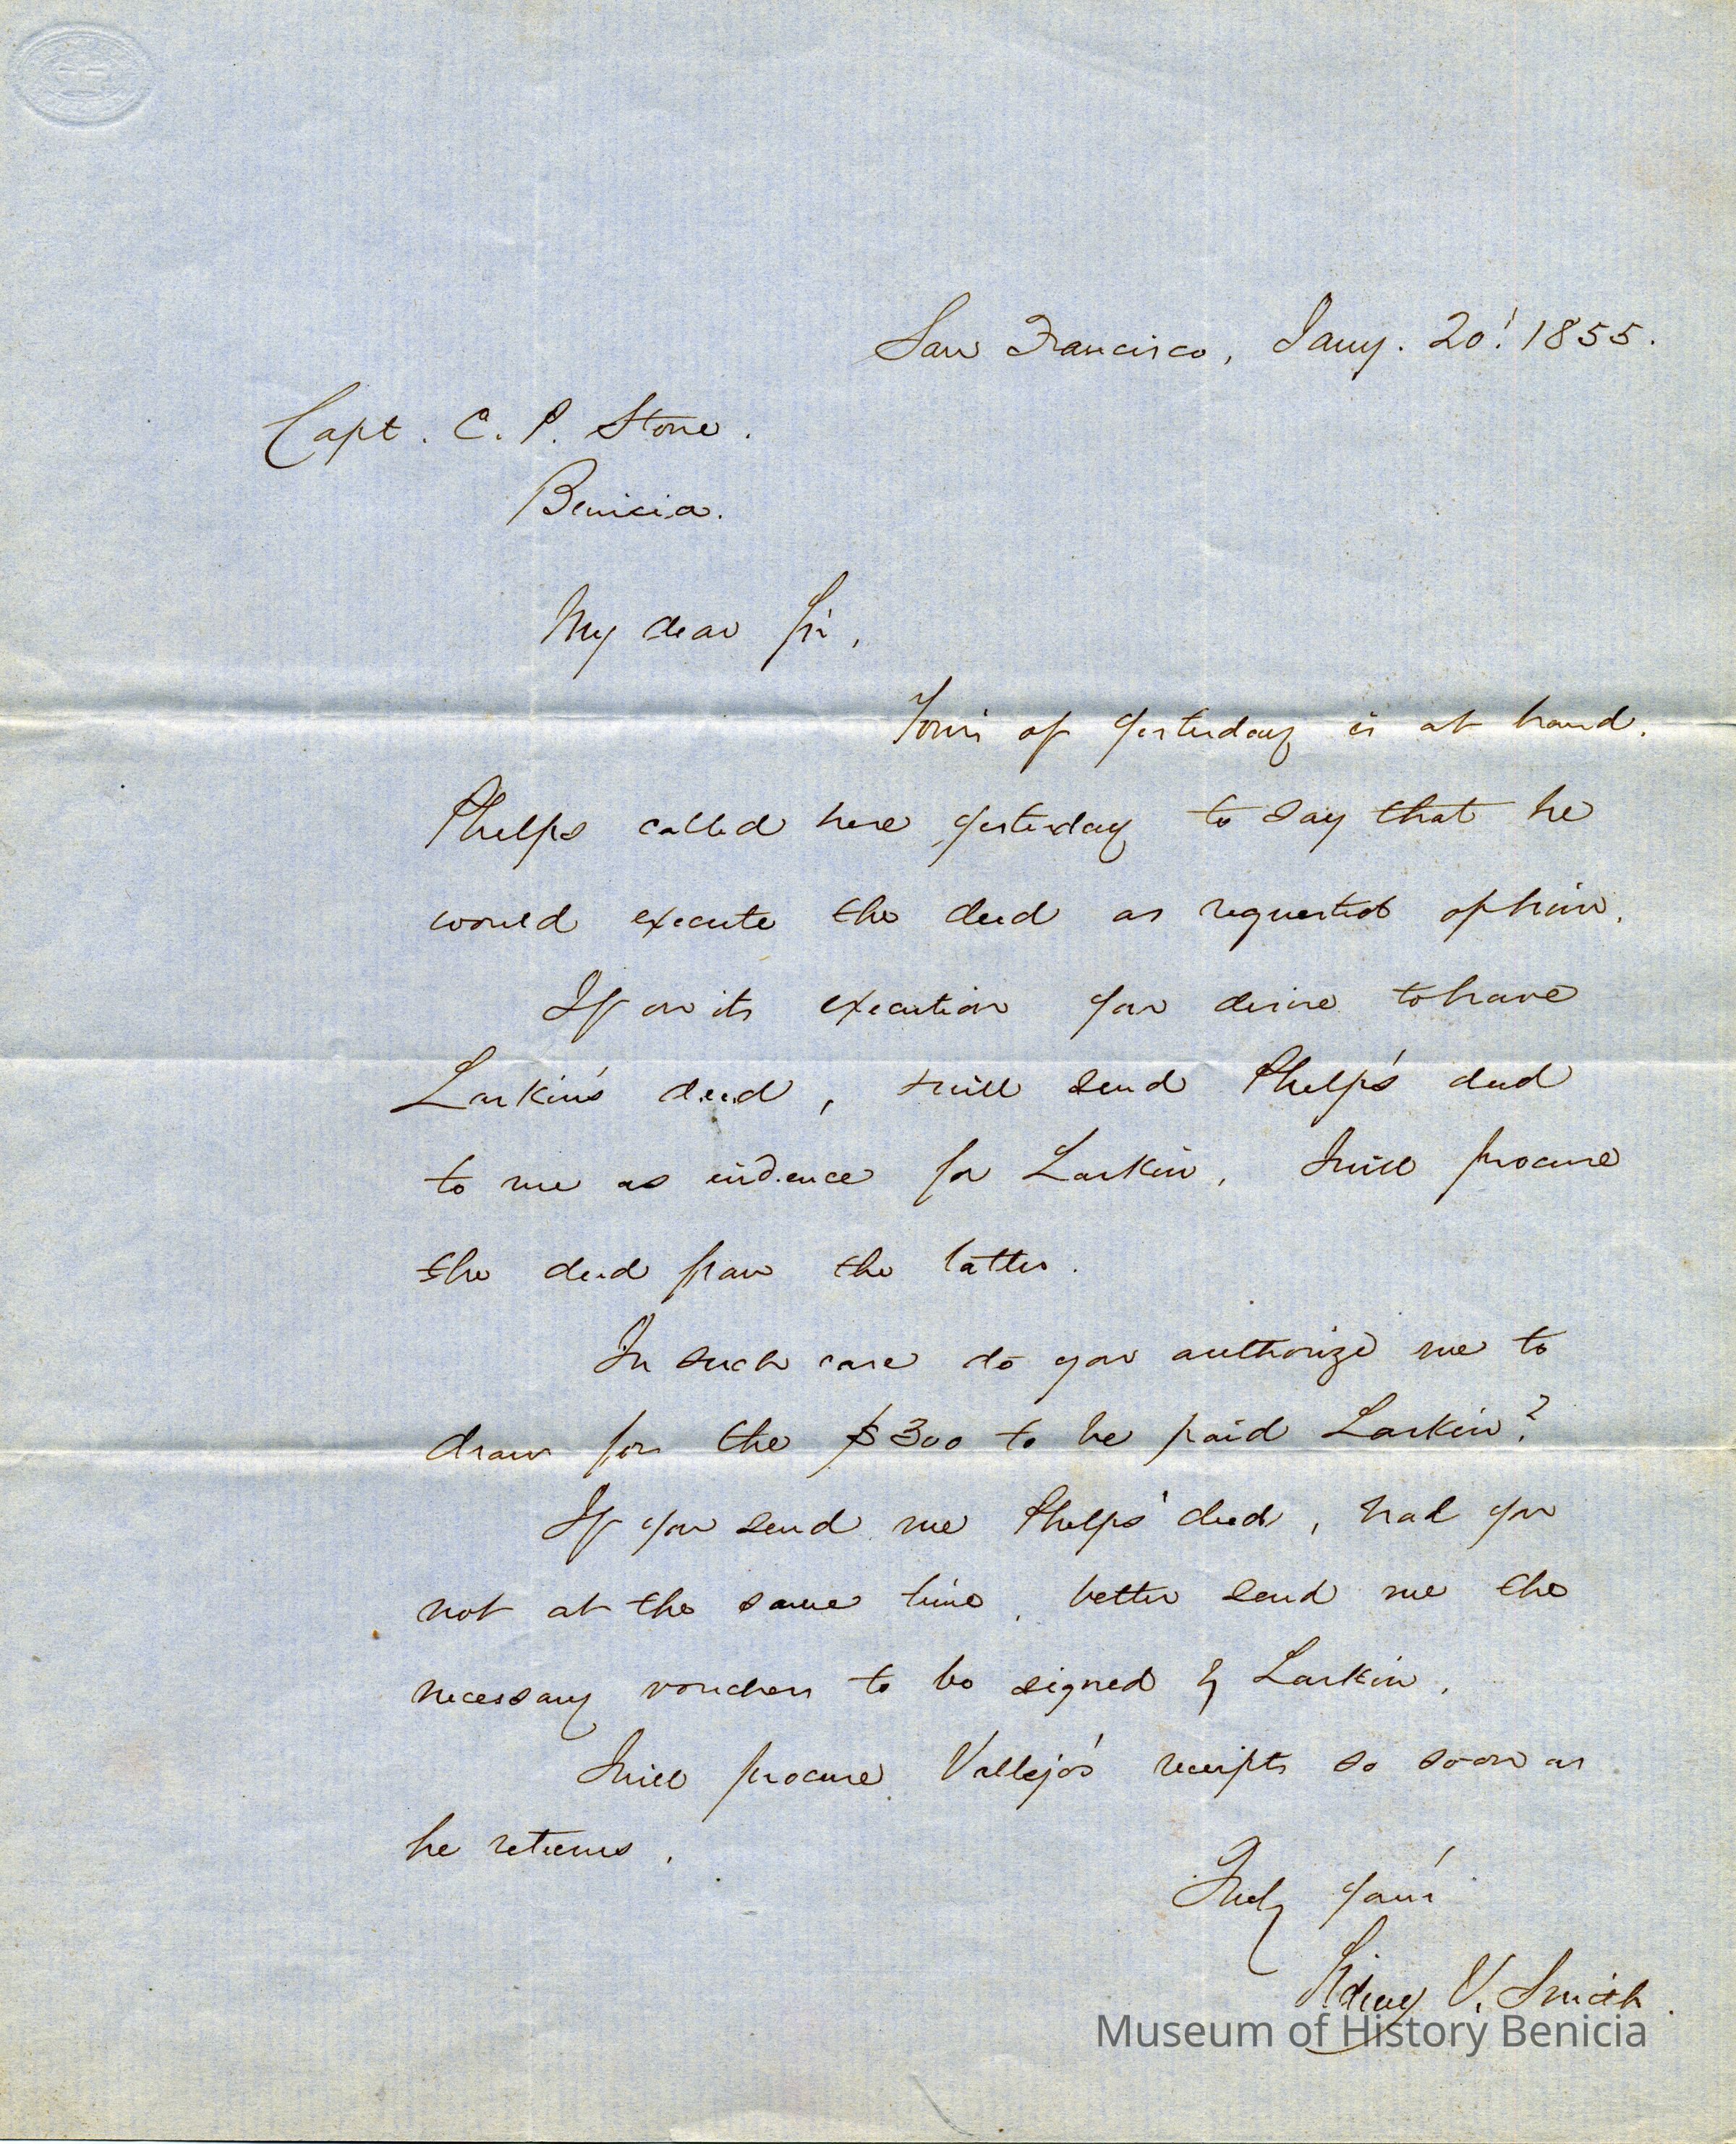 San Francisco, Jany. 20! 1855.
Capt. C. P. Stone.
Benicia.
My dear Sir,
Yours of yesterday is at hand.
Phelps called here yesterday to say that he
would execute the deed as requested of him.
If on its execution you desire to have
Larkin's deed, & will send Phelps' deed
to me as evidence for Larkin, I will procure
the deed from the latter.
In such case do you authorize me to
draw for the $300 to be paid Larkin?
If you send me Phelps' deed, had you
not at the same time, better send me the
necessary vouchers to be signed by Larkin.
I will procure Vallejo's receipts so soon as
he returns.
Truly yours
Sidney V. Smith.
Museum of History Benicia